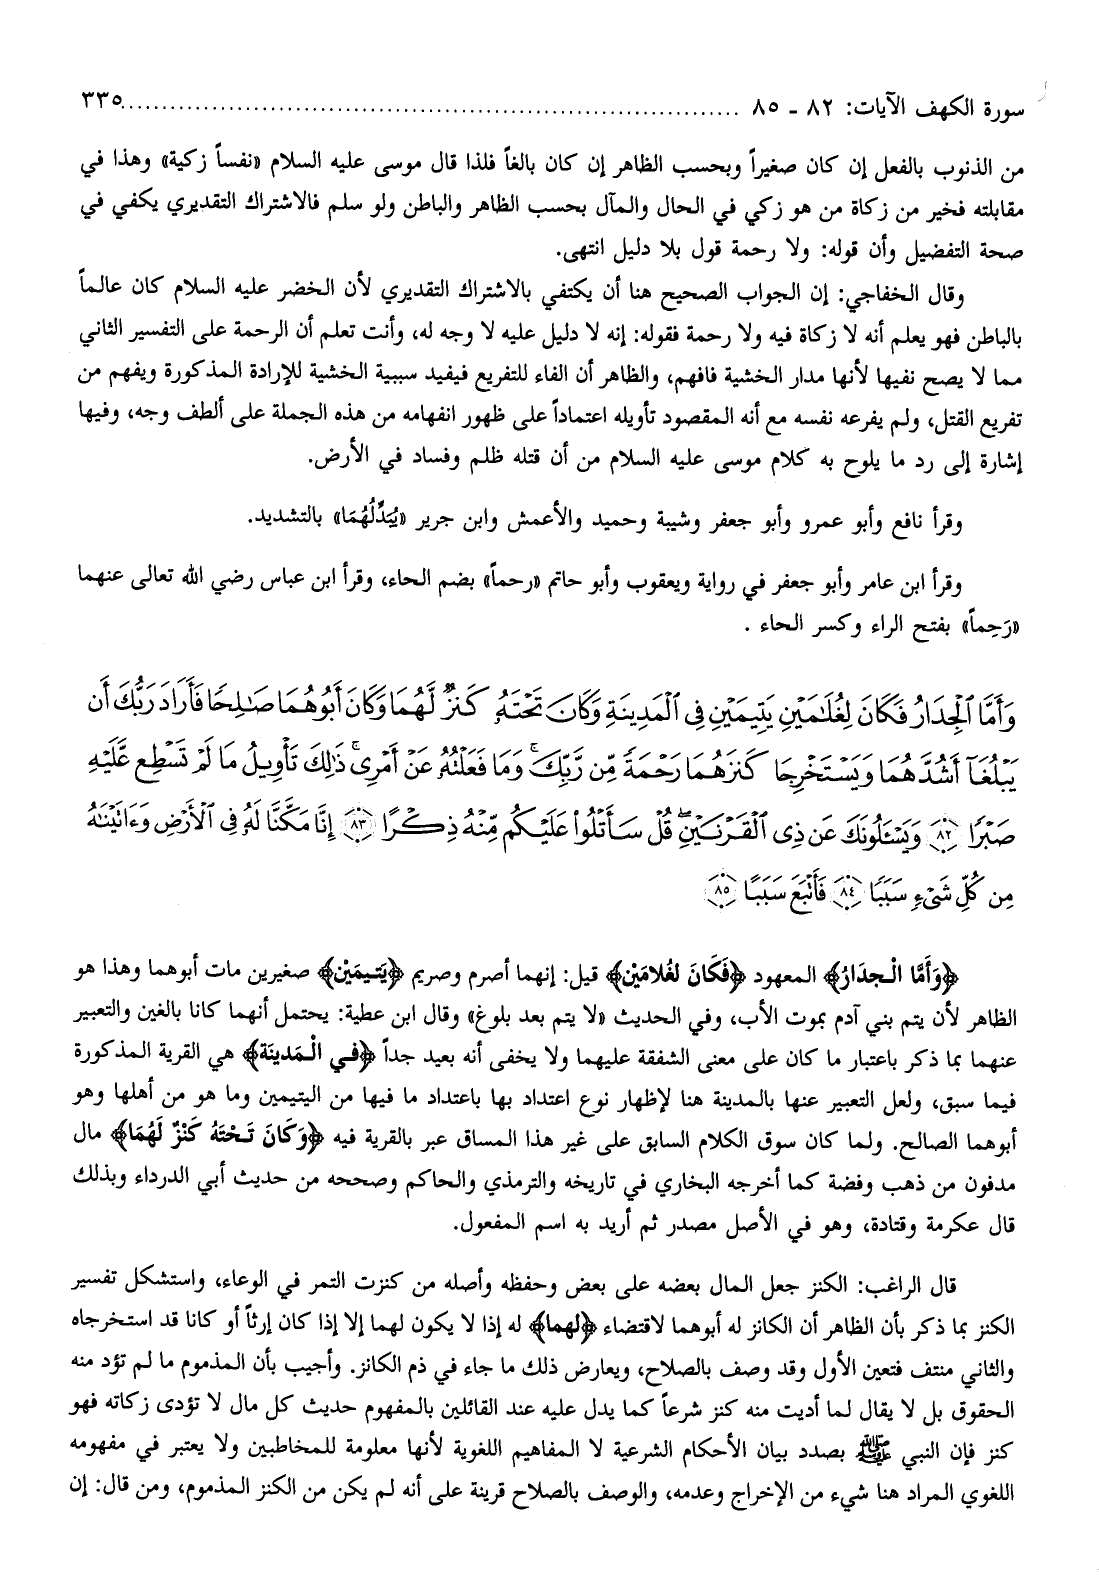 سورة الكهف الآيات: ٨٢ ـ ٨٥ ........................................................................ ٣٣٥
من الذنوب بالفعل إن كان صغيراً وبحسب الظاهر إن كان بالغاً فلذا قال موسى عليه السلام «نفساً زكية» وهذا في
مقابلته فخير من زكاة من هو زكي في الحال والمآل بحسب الظاهر والباطن ولو سلم فالاشتراك التقديري يكفي في
صحة التفضيل وأن قوله: ولا رحمة قول بلا دليل انتهى.
وقال الخفاجي: إن الجواب الصحيح هنا أن يكتفي بالاشتراك التقديري لأن الخضر عليه السلام كان عالماً
بالباطن فهو يعلم أنه لا زكاة فيه ولا رحمة فقوله: إنه لا دليل عليه لا وجه له، وأنت تعلم أن الرحمة على التفسير الثاني
مما لا يصح نفيها لأنها مدار الخشية فافهم، والظاهر أن الفاء للتفريع فيفيد سببية الخشية للإرادة المذكورة ويفهم من
تفريع القتل، ولم يفرعه نفسه مع أنه المقصود تأويله اعتماداً على ظهور انفهامه من هذه الجملة على ألطف وجه، وفيها
إشارة إلى رد ما يلوح به كلام موسى عليه السلام من أن قتله ظلم وفساد في الأرض.
وقرأ نافع وأبو عمرو وأبو جعفر وشيبة وحميد والأعمش وابن جرير «يُبَدِّلَهُمَا» بالتشديد.
وقرأ ابن عامر وأبو جعفر في رواية ويعقوب وأبو حاتم «رحماً» بضم الحاء، وقرأ ابن عباس رضي الله تعالى عنهما
«رَحِماً» بفتح الراء وكسر الحاء .
وَأَمَّا ٱلْجِدَارُ فَكَانَ لِغُلَٰمَيْنِ يَتِيمَيْنِ فِى ٱلْمَدِينَةِ وَكَانَ تَحْتَهُۥ كَنزٌ لَّهُمَا وَكَانَ أَبُوهُمَا صَٰلِحًا فَأَرَادَ رَبُّكَ أَن
يَبْلُغَآ أَشُدَّهُمَا وَيَسْتَخْرِجَا كَنزَهُمَا رَحْمَةً مِّن رَّبِّكَ ۚ وَمَا فَعَلْتُهُۥ عَنْ أَمْرِى ۚ ذَٰلِكَ تَأْوِيلُ مَا لَمْ تَسْطِع عَّلَيْهِ
صَبْرًا ﴿٨٢﴾ وَيَسْـَٔلُونَكَ عَن ذِى ٱلْقَرْنَيْنِ ۖ قُلْ سَأَتْلُوا۟ عَلَيْكُم مِّنْهُ ذِكْرًا ﴿٨٣﴾ إِنَّا مَكَّنَّا لَهُۥ فِى ٱلْأَرْضِ وَءَاتَيْنَٰهُ
مِن كُلِّ شَىْءٍ سَبَبًا ﴿٨٤﴾ فَأَتْبَعَ سَبَبًا ﴿٨٥﴾
﴿وَأَمَّا الْجِدَارُ﴾ المعهود ﴿فَكَانَ لغُلامَيْن﴾ قيل: إنهما أصرم وصريم ﴿يَتيمَيْن﴾ صغيرين مات أبوهما وهذا هو
الظاهر لأن يتم بني آدم بموت الأب، وفي الحديث «لا يتم بعد بلوغ» وقال ابن عطية: يحتمل أنهما كانا بالغين والتعبير
عنهما بما ذكر باعتبار ما كان على معنى الشفقة عليهما ولا يخفى أنه بعيد جداً ﴿في الْمَدينَة﴾ هي القرية المذكورة
فيما سبق، ولعل التعبير عنها بالمدينة هنا لإظهار نوع اعتداد بها باعتداد ما فيها من اليتيمين وما هو من أهلها وهو
أبوهما الصالح. ولما كان سوق الكلام السابق على غير هذا المساق عبر بالقرية فيه ﴿وَكَانَ تَحْتَهُ كَنْزٌ لَهُمَا﴾ مال
مدفون من ذهب وفضة كما أخرجه البخاري في تاريخه والترمذي والحاكم وصححه من حديث أبي الدرداء وبذلك
قال عكرمة وقتادة، وهو في الأصل مصدر ثم أريد به اسم المفعول.
قال الراغب: الكنز جعل المال بعضه على بعض وحفظه وأصله من كنزت التمر في الوعاء، واستشكل تفسير
الكنز بما ذكر بأن الظاهر أن الكانز له أبوهما لاقتضاء ﴿لهما﴾ له إذا لا يكون لهما إلا إذا كان إرثاً أو كانا قد استخرجاه
والثاني منتف فتعين الأول وقد وصف بالصلاح، ويعارض ذلك ما جاء في ذم الكانز. وأجيب بأن المذموم ما لم تؤد منه
الحقوق بل لا يقال لما أديت منه كنز شرعاً كما يدل عليه عند القائلين بالمفهوم حديث كل مال لا تؤدى زكاته فهو
كنز فإن النبي ﷺ بصدد بيان الأحكام الشرعية لا المفاهيم اللغوية لأنها معلومة للمخاطبين ولا يعتبر في مفهومه
اللغوي المراد هنا شيء من الإخراج وعدمه، والوصف بالصلاح قرينة على أنه لم يكن من الكنز المذموم، ومن قال: إن